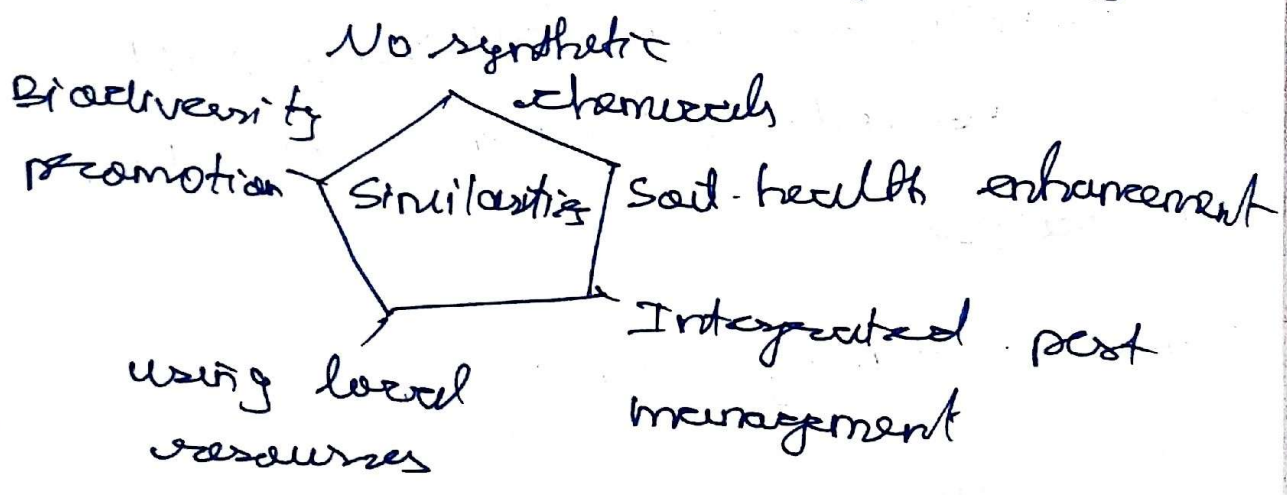 No synthetic
chemicals
Biodiversity
promotion
Similarities
Soil-health enhancement
Integrated pest
management
using local
resources